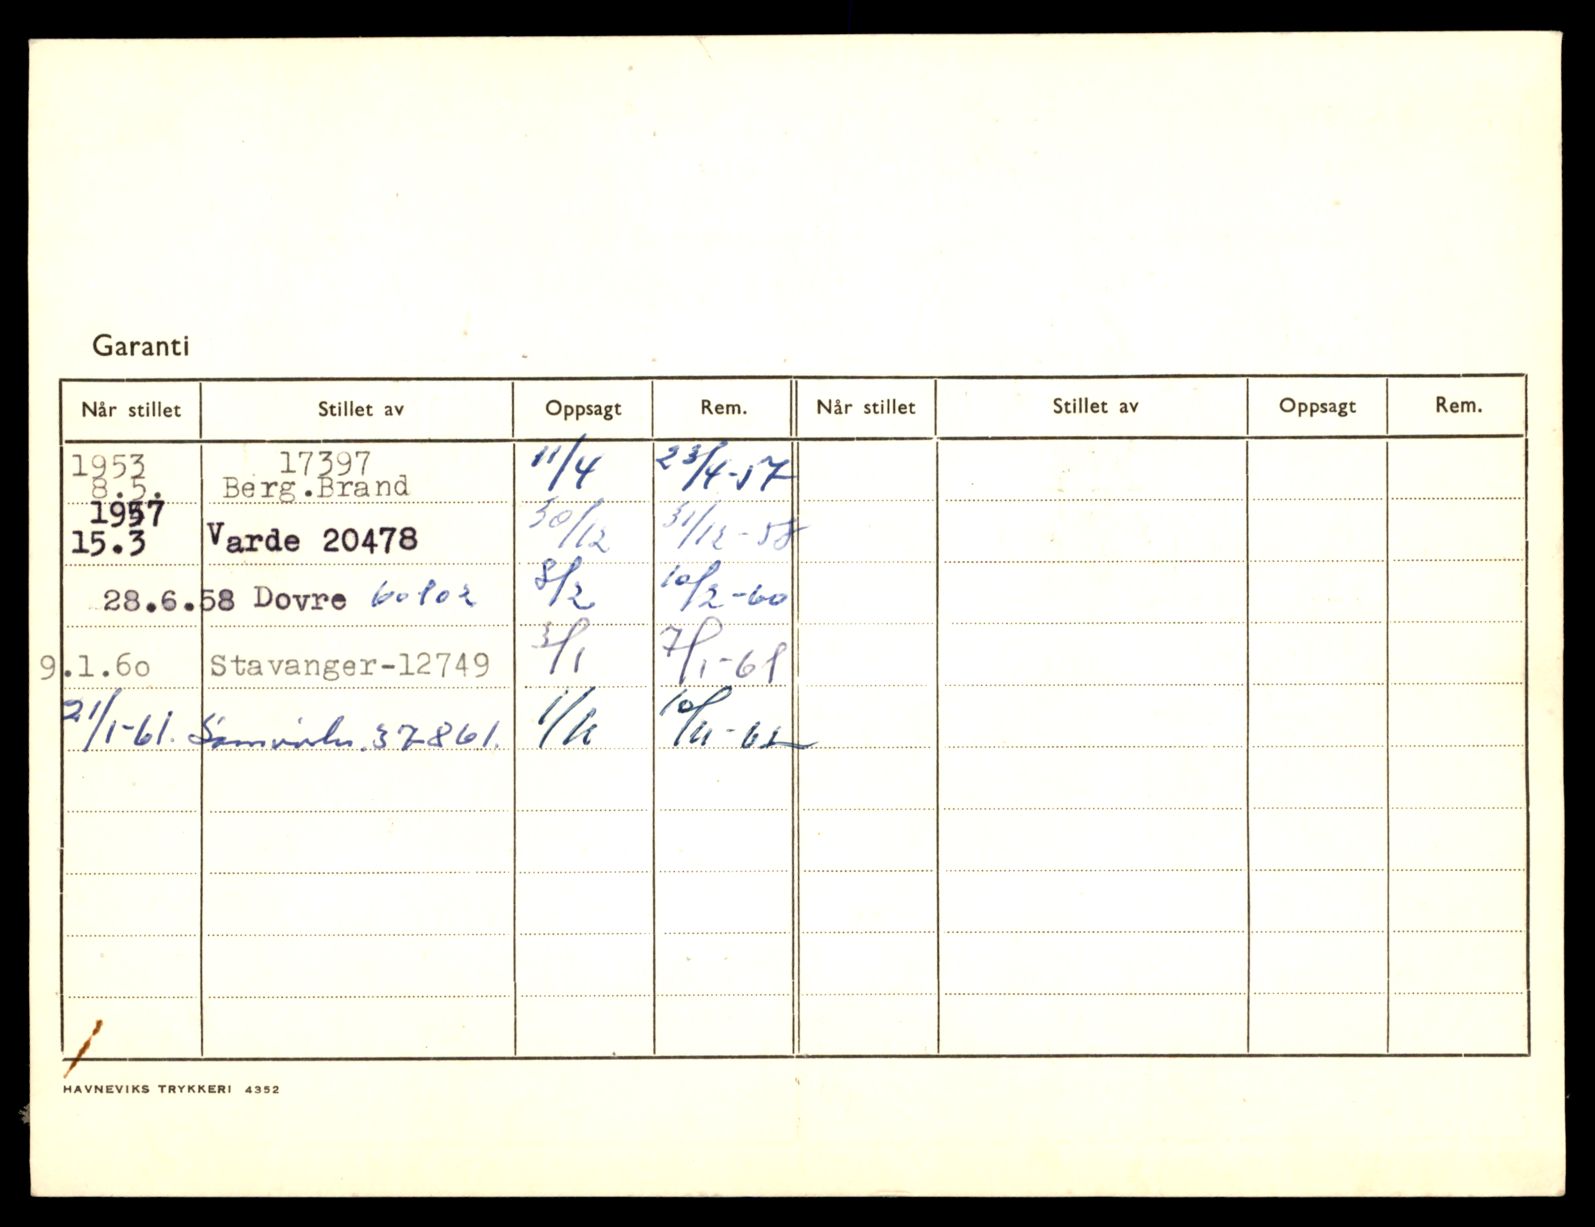 Garanti
Når stillet Stillet av Oppsagt Rem. Når stillet Stillet av Oppsagt Rem.
1953 17397 11/4 23/4-57
8.5. Berg.Brand
1957
15.3 Varde 20478 30/12 31/12-58
28.6.58 Dovre 60102 8/2 10/2-60
9.1.60 Stavanger-12749 3/1 7/1-61
21/1-61. 37861. 10/11-62
HAVNEVIKS TRYKKERI 4352